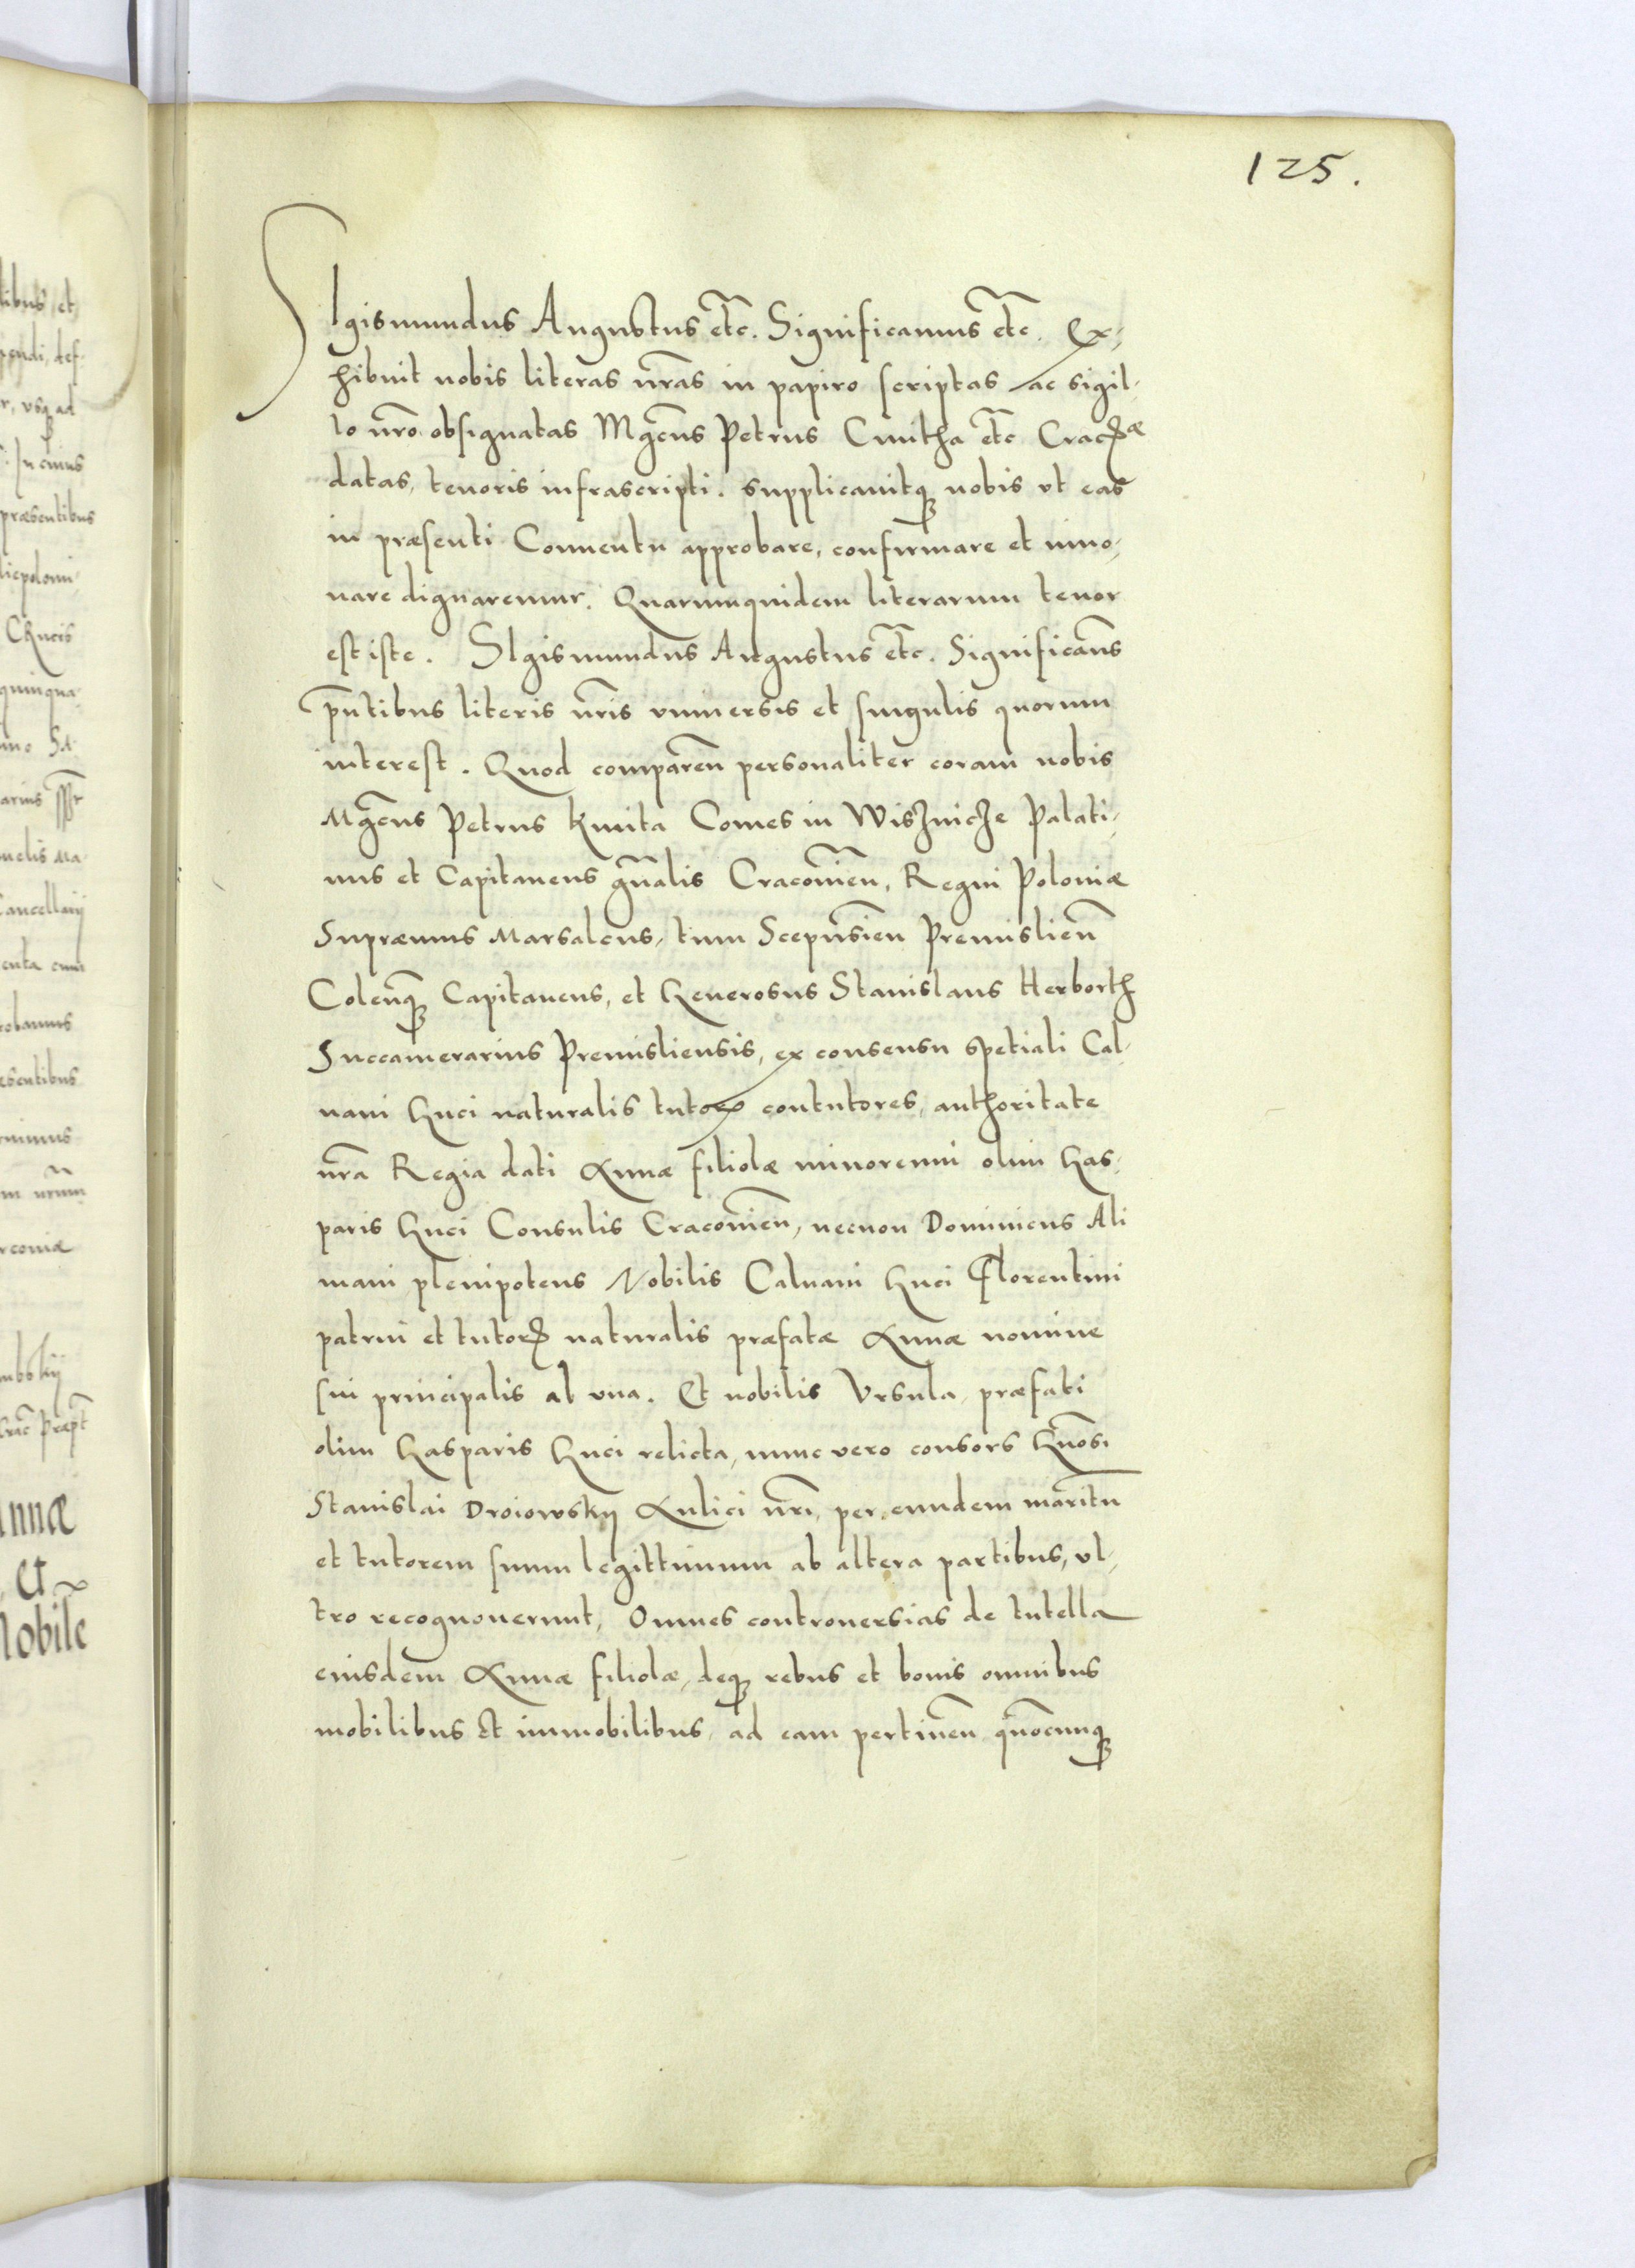 125.
SIgismundus Augustus etc̃. Significamus etc̃. Ex-
hibuit nobis literas nr̃as in papiro scriptas ac sigil-
lo nr̃o obsignatas Mg̃cus Petrus Cmitha etc̃
datas, tenoris infrascripti. supplicauitq́ꝫ nobis vt eas
in præsenti Conuentu approbare, confirmare et inno-
uare dignaremur. Quarumquidem literarum tenor
est iste. SIgismundus Augustus etc̃. Significam̃s
pñtibus literis nr̃is vniuersis et singulis quorum
interest. Quod comparen̄ personaliter coram nobis
Mg̃cus Petrus Kmita Comes in Wisznicze Palati-
nus et Capitaneus gñalis Cracouien̄, Regni Poloniæ
Supræmus Marsalcus, tum Scepusien̄ Premislien̄
Colen̄qꝫ Capitaneus, et Generosus Stanislaus Herborth
Succamerarius Premisliensis, ex consensu spetiali Cal-
uani Guci naturalis tutoris contutores, authoritate
nr̃a Regia dati Annæ filiolæ minorenni olim Gas-
paris Guci Consulis Cracouien̄, necnon Dominicus Ali
mani plenipotens Nobilis Caluani Guci Florentini
patrui et tutoris naturalis præfatæ Annæ nomine
sui principalis ab vna. Et nobilis Vrsula, præfati
olim Gasparis Guci relicta, nunc vero consors Gñosi
Stanislai Droiowskij Aulici nr̃i, per eundem maritũ
et tutorem suum legittimum ab altera partibus, vl-
tro recognouerunt, Omnes controuersias de tutella
eiusdem Annæ filiolæ, deqꝫ rebus et bonis omnibus
mobilibus et immobilibus, ad eam pertinen̄ quõcunqꝫ